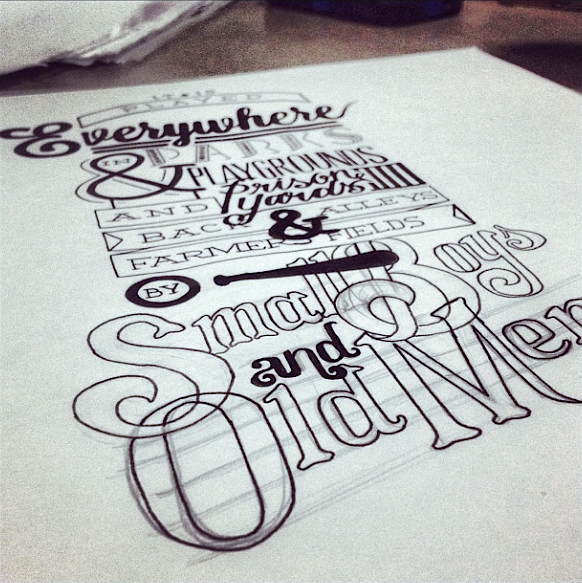 IT IS
PLAYED
Everywhere
IN PARKS
& PLAYGROUNDS
prison
yards
AND
BACK & ALLEYS
FARMERS FIELDS
BY
Small Boys
and
Old Men